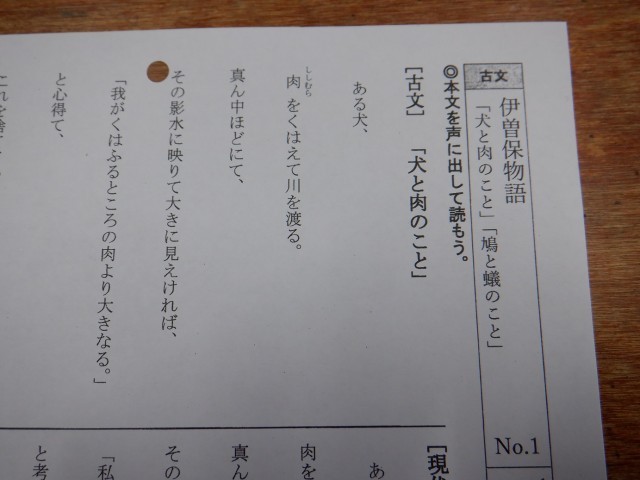 古文
伊曽保物語
「犬と肉のこと」「鳩と蟻のこと」
No.1
◎本文を声に出して読もう。
[古文] 「犬と肉のこと」
ある犬、
肉をくはえて川を渡る。
ししむら
真ん中ほどにて、
その影水に映りて大きに見えければ、
「我がくはふるところの肉より大きなる。」
と心得て、
これを捨
[現
あ
肉を
真ん
その
「私
と考